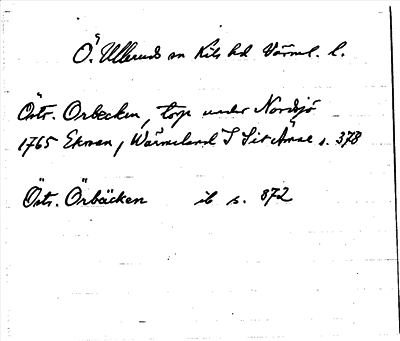 Ö. Ullerud sn Kils hd Värml. l.
Östr. Orbecken, torp under Nordsjö
1765 Ekman, Wärmeland I Sit Ämne s. 378
Östr. Örbäcken ib s. 872